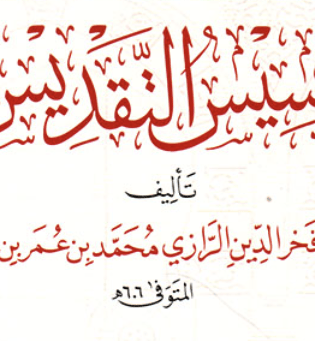 سيس التقديس
تأليف
فخر الدين الرازي محمد بن عمر بن
المتوفى ٦٠٦ هـ